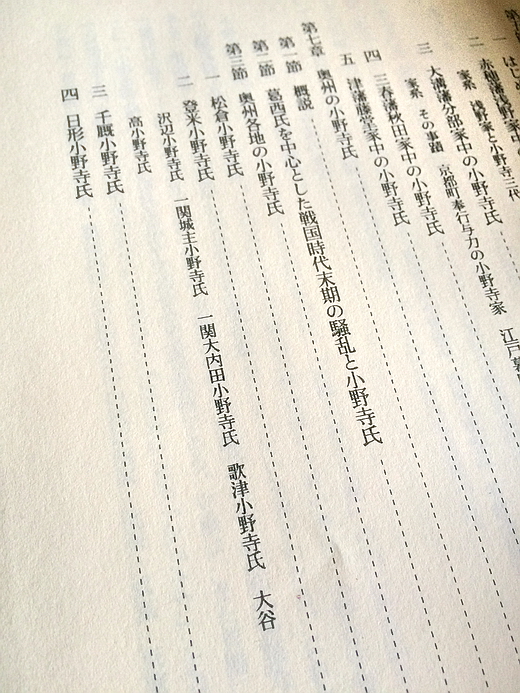 一 はじめに
赤穂藩浅野家中の
家系 浅野家と小野寺三代
二 大溝藩分部家中の小野寺氏
家系 その事蹟 京都町奉行与力の小野寺家 江戸
三
四 三春藩秋田家中の小野寺氏
五 津藩藤堂家中の小野寺氏
第七章 奥州の小野寺氏
第一節 概説
第二節 葛西氏を中心とした戦国時代末期の騒乱と小野寺氏
第三節 奥州各地の小野寺氏
一 松倉小野寺氏
二 登米小野寺氏
沢辺小野寺氏 一関城主小野寺氏 一関大内田小野寺氏 歌津小野寺氏 大谷
高小野寺氏
三 千厩小野寺氏
四 日形小野寺氏